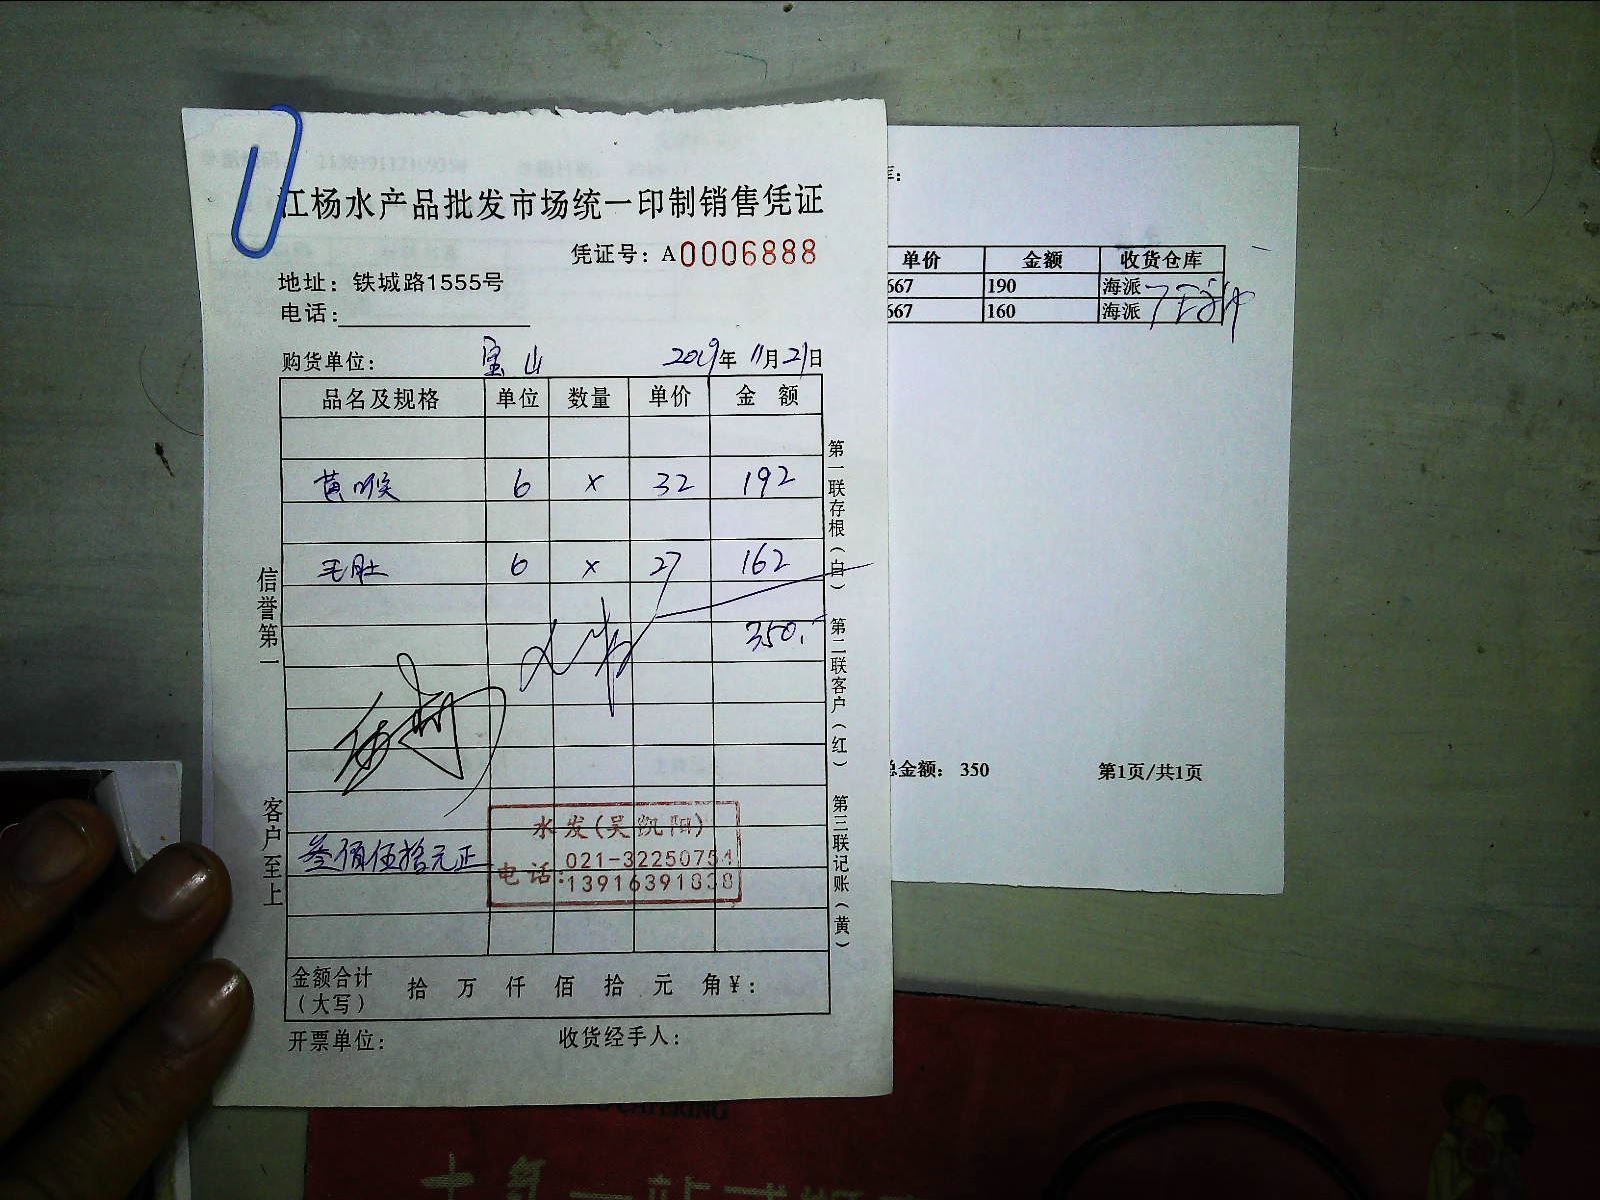 江杨水产品批发市场统一印制销售凭证
凭证号：A0006888
地址：铁城路1555号
电话：
购货单位： 宝山 2019年11月21日
品名及规格 单位 数量 单价 金 额
黄喉 6 x 32 192
毛肚 6 x 27 162
350.-
水发(吴凯阳)
电话：021-32250754
13916391838
叁佰伍拾元正
金额合计（大写） 拾 万 仟 佰 拾 元 角 ¥：
开票单位： 收货经手人：
信誉第一
客户至上
第一联存根（白）
第二联客户（红）
第三联记账（黄）
单价 金额 收货仓库
667 190 海派
667 160 海派
总金额： 350 第1页/共1页
CATERING